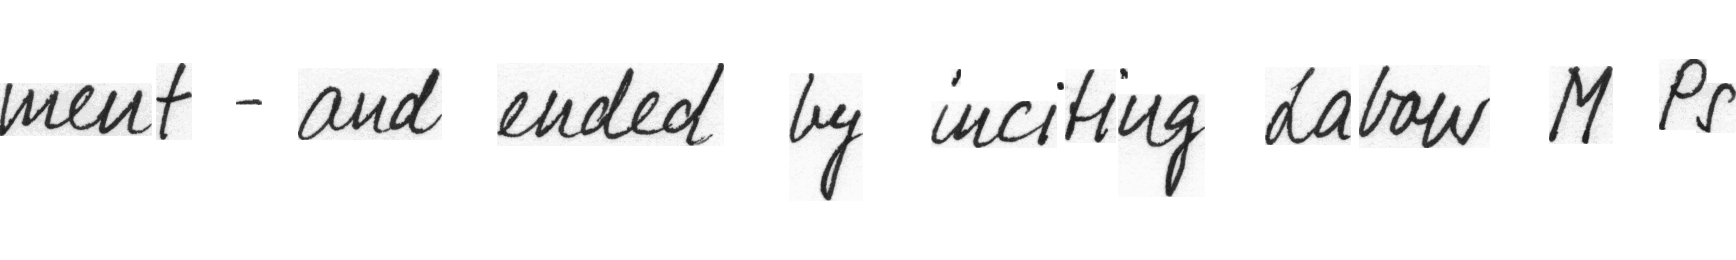 ment - and ended by inciting Labour M Ps